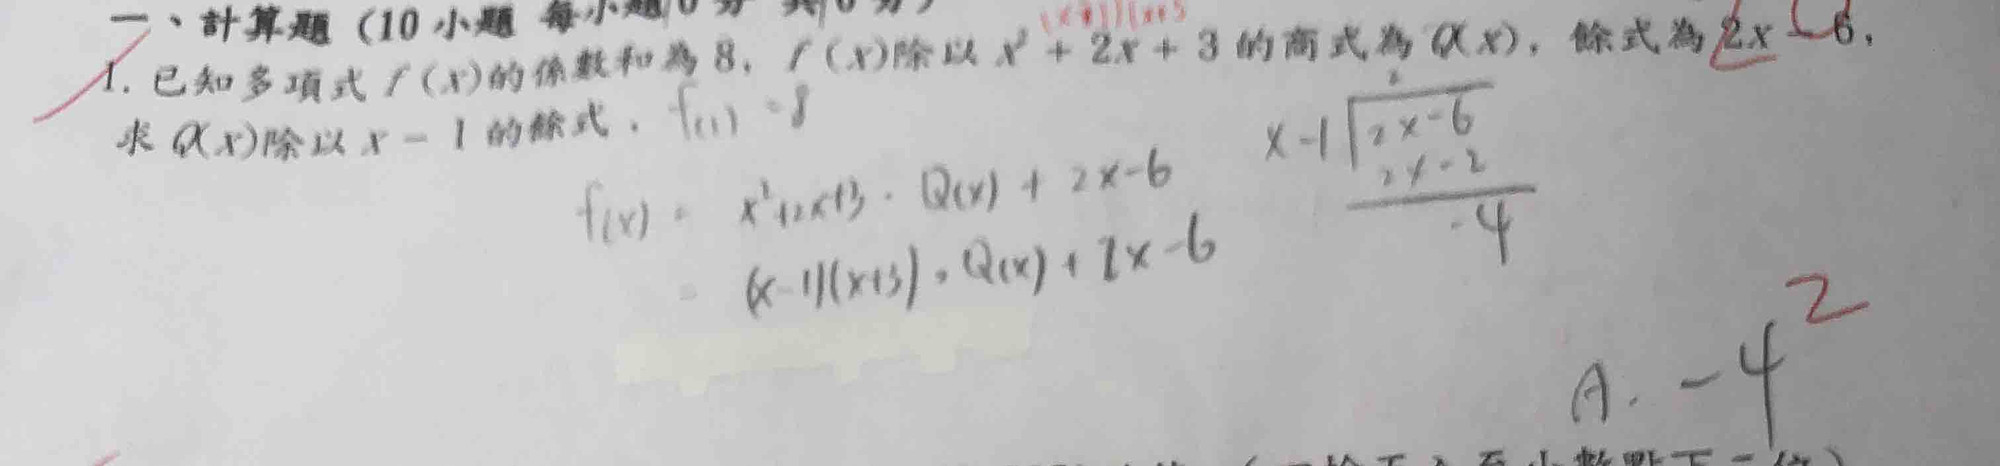 一、計算題(10 小題 每小題
1. 已知多項式 f(x)的係數和為 8, f(x)除以 x² + 2x + 3 的商式為 Q(x), 餘式為 2x - 6,
求 Q(x)除以 x - 1 的餘式. f(1) = 8
f(x) = x²+2x+3 · Q(x) + 2x-6
= (x-1)(x+3) · Q(x) + 2x-6
x-1 2x-6
2x-2
-4
A. -4 2